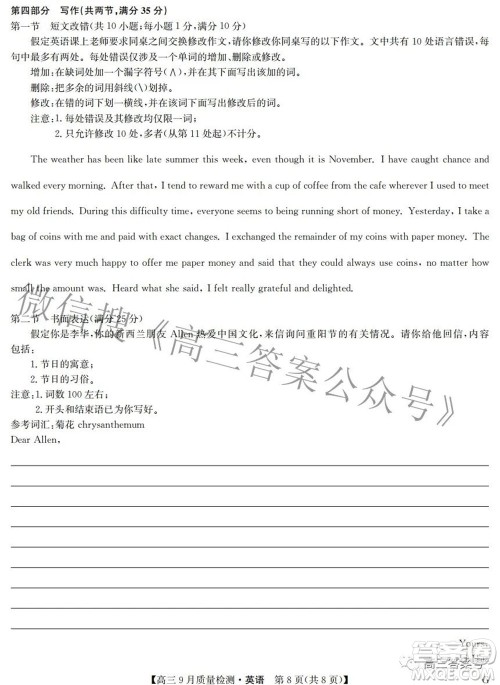 第四部分　写作(共两节,满分 35 分)
第一节　短文改错(共 10 小题;每小题 1 分,满分 10 分)
假定英语课上老师要求同桌之间交换修改作文,请你修改你同桌写的以下作文。文中共有 10 处语言错误,每
句中最多有两处。每处错误仅涉及一个单词的增加、删除或修改。
增加:在缺词处加一个漏字符号(∧),并在其下面写出该加的词。
删除:把多余的词用斜线(\)划掉。
修改:在错的词下划一横线,并在该词下面写出修改后的词。
注意:1. 每处错误及其修改均仅限一词;
2. 只允许修改 10 处,多者(从第 11 处起)不计分。
The weather has been like late summer this week, even though it is November. I have caught chance and
walked every morning. After that, I tend to reward me with a cup of coffee from the cafe wherever I used to meet
my old friends. During this difficulty time, everyone seems to being running short of money. Yesterday, I take a
bag of coins with me and paid with exact changes. I exchanged the remainder of my coins with paper money. The
clerk was very much happy to offer me paper money and said that they could always use coins, no matter how
small the amount was. Heard what she said, I felt really grateful and delighted.
第二节　书面表达(满分 25 分)
假定你是李华,你的新西兰朋友 Allen 热爱中国文化,来信询问重阳节的有关情况。请你给他回信,内容
包括:
1. 节日的寓意;
2. 节日的习俗。
注意:1. 词数 100 左右;
2. 开头和结束语已为你写好。
参考词汇:菊花 chrysanthemum
Dear Allen,
微信搜《高三答案公众号》
Yours,
高三答案号
【高三 9 月质量检测·英语　第 8 页(共 8 页)】
G